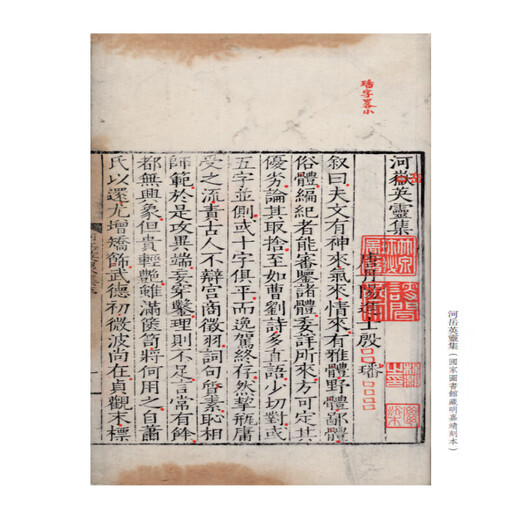 河嶽英靈集
唐丹陽進士殷璠
叙曰夫文有神來氣來情來有雅體野體鄙體
俗體編紀者能審鑒諸體委詳所來方可定其
優劣論其取捨至如曹劉詩多直語少切對或
五字並側或十字俱平而逸駕終存然挈瓶庸
受之流責古人不辯宮商徵羽詞句質素恥相
師範於是攻異端妄穿鑿理則不足言常有餘
都無興象但貴輕艷雖滿篋笥將何用之自蕭
氏以還尤增矯飾武德初微波尚在貞觀末標
河岳英靈集（國家圖書館藏明嘉靖刻本）